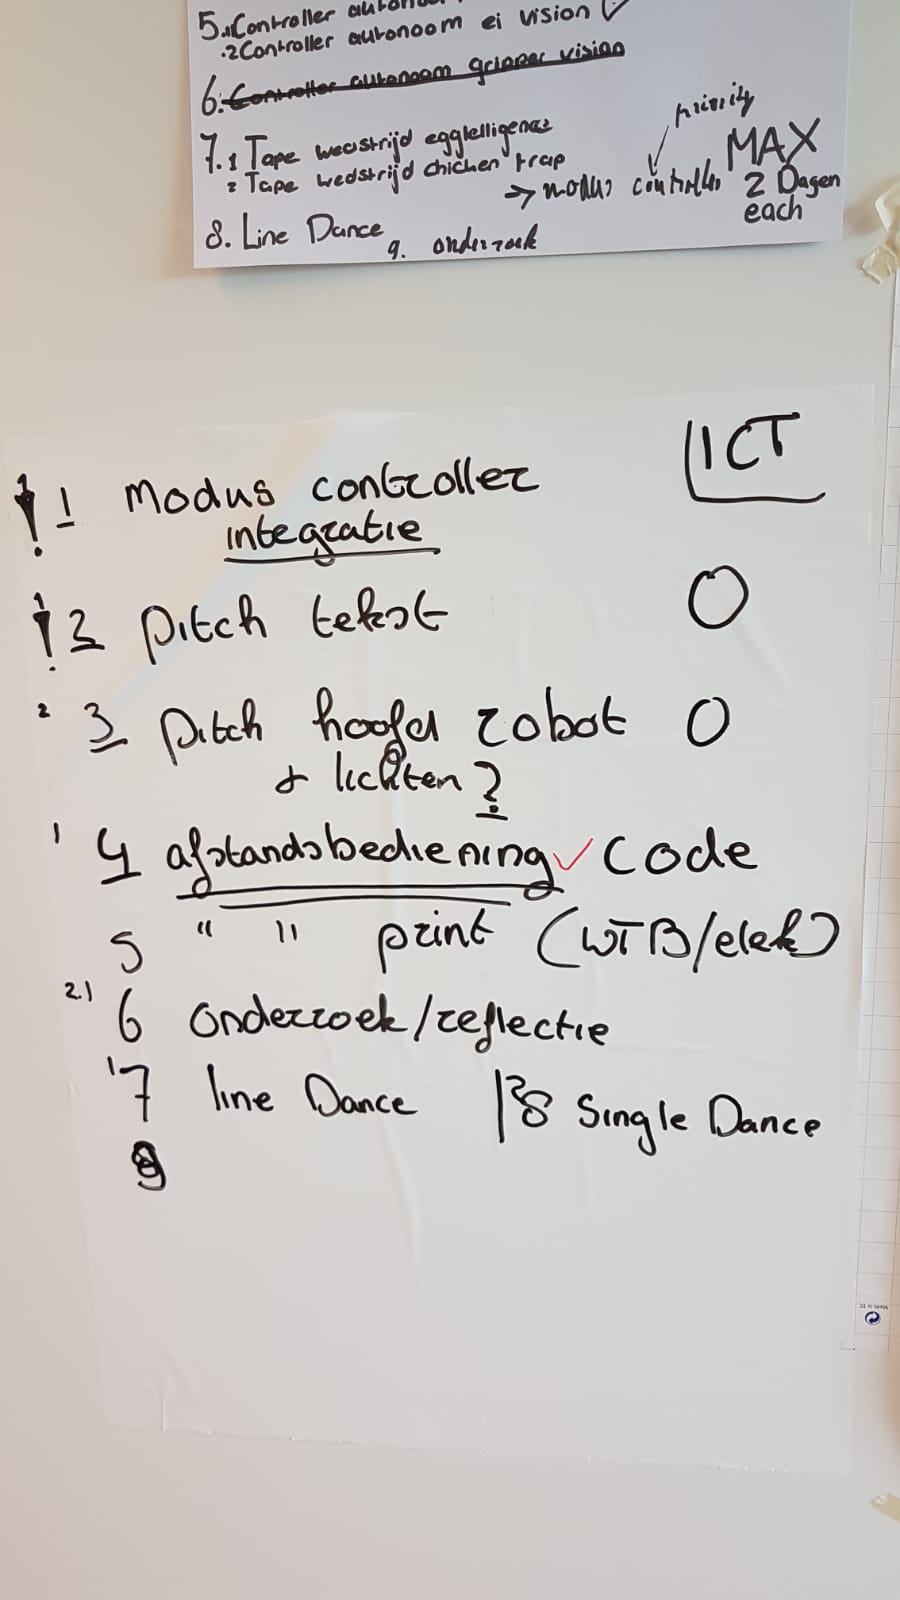 5.1 Controller autonoo
.2 Controller autonoom ei vision ✓
6. Controller autonoom gripper vision
priority
7.1 Tape wedstrijd eggtelligence
2 Tape wedstrijd chicken trap
MAX
→ modus controller 2 Dagen
each
8. Line Dance
9. onderzoek
ICT
! 1 Modus controller
integratie
! 2 pitch tekst O
2 3 pitch hoofd robot O
+ lichten?
1 4 afstandsbediening ✓ code
5 " " print (WTB/elek)
2.1 6 Onderzoek/reflectie
1 7 line Dance | 2 8 Single Dance